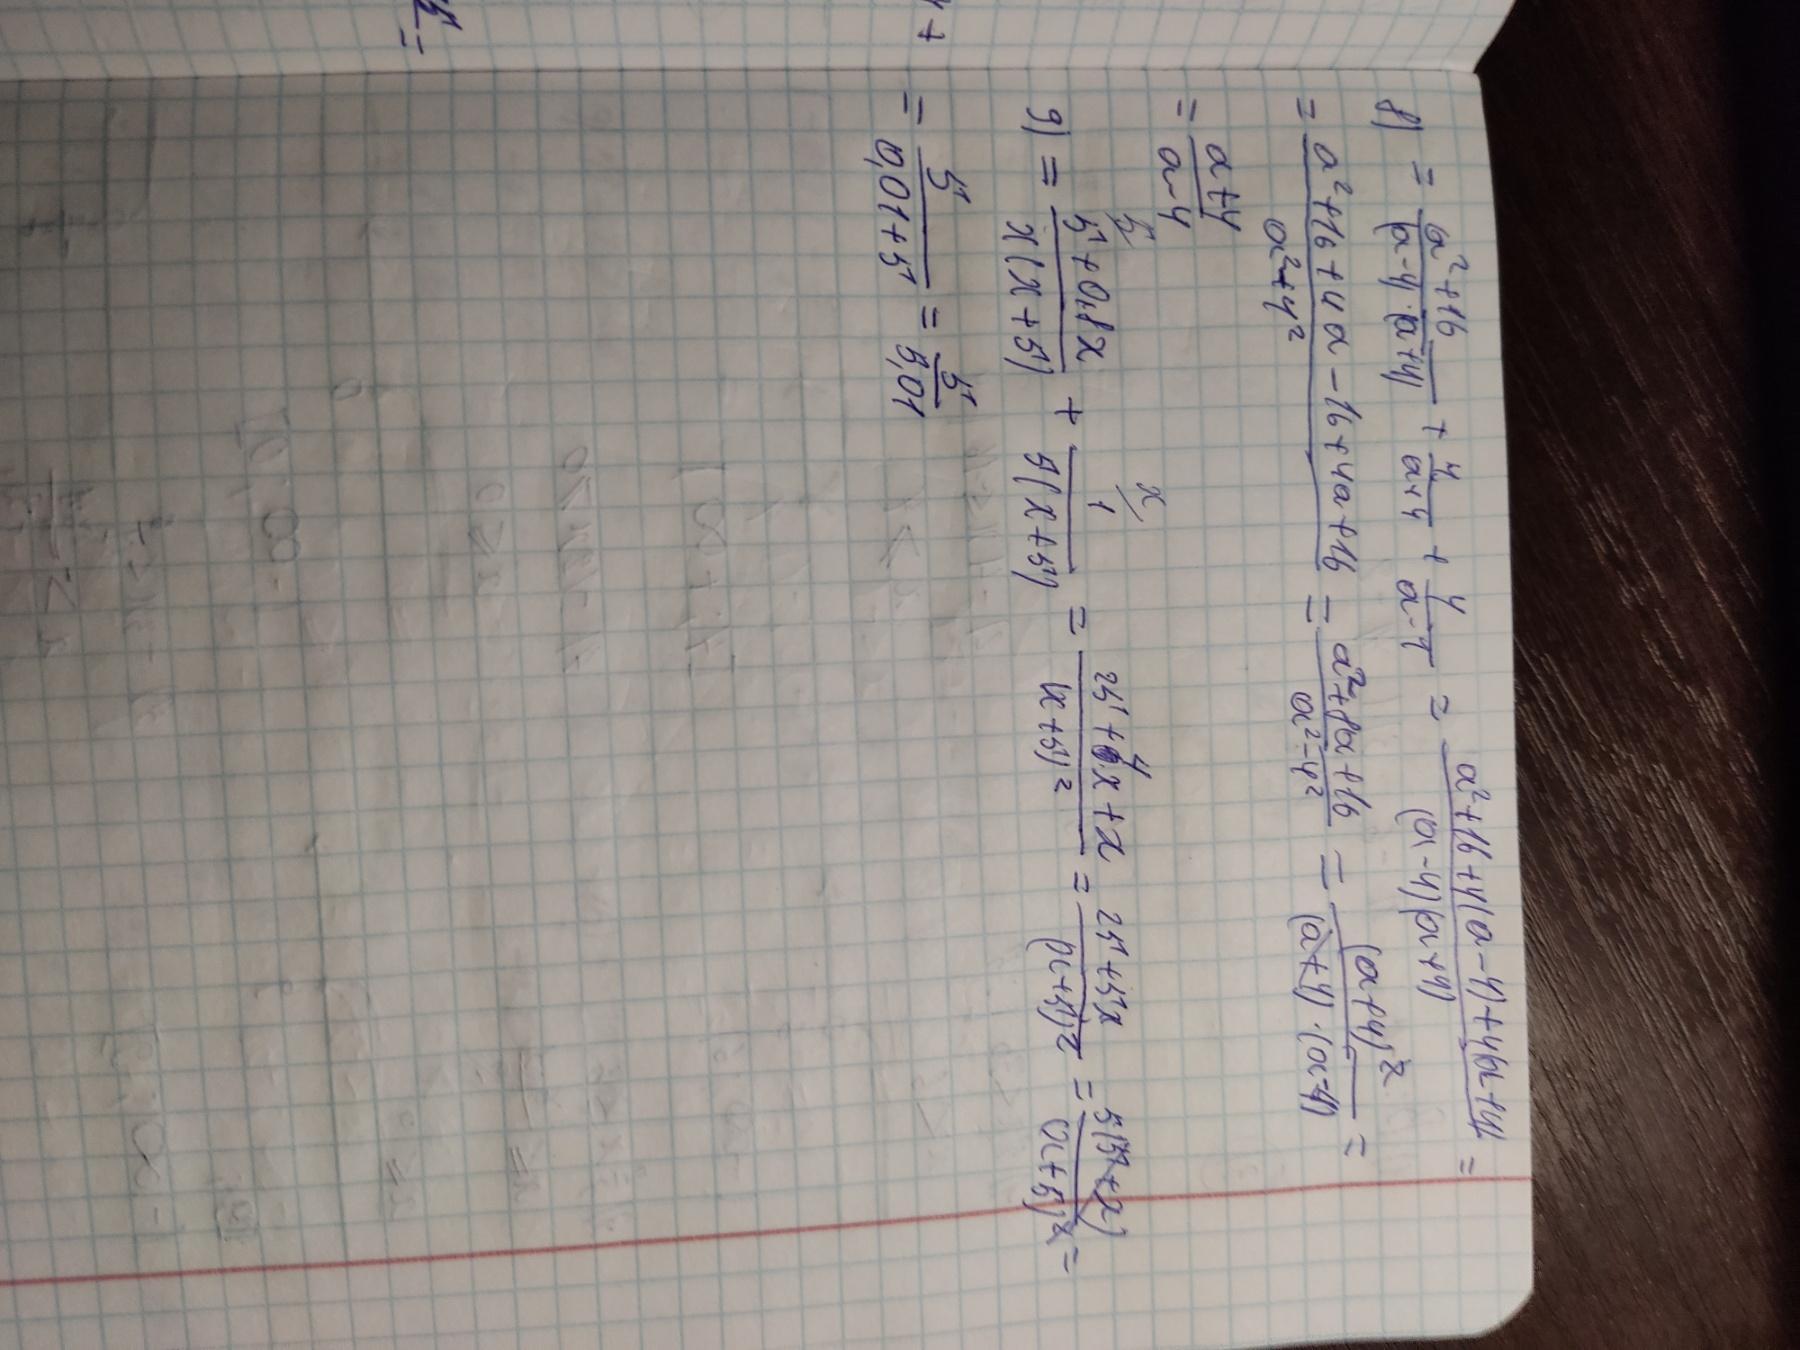 8) = (a²+16)/((a-4)·(a+4)) + 4/(a+4) + 4/(a-4) = (a²+16+4(a-4)+4(a+4))/((a-4)(a+4)) =
= (a²+16+4a-16+4a+16)/(a²+4²) = (a²+8a+16)/(a²-4²) = (a+4)²/((a+4)·(a-4)) =
= (a+4)/(a-4)
9) = (5+0,8x)/(x(x+5)) + 1/(5(x+5)) = (25+4x+x)/(x+5)² = (25+5x)/(x+5)² = 5(5+x)/(x+5)² =
= 5/(0,01+5) = 5/5,01